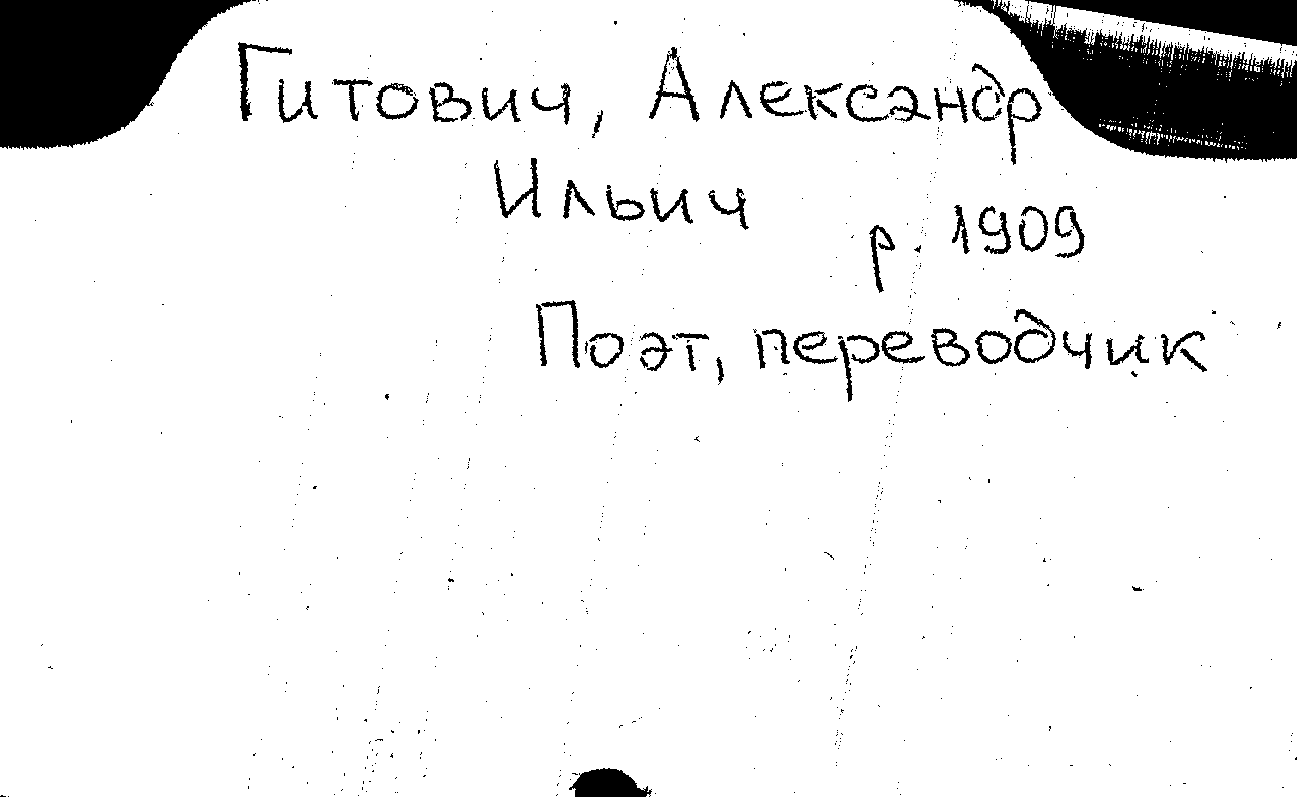 Гитович, Александр
Ильич
р. 1909
Поэт, переводчик